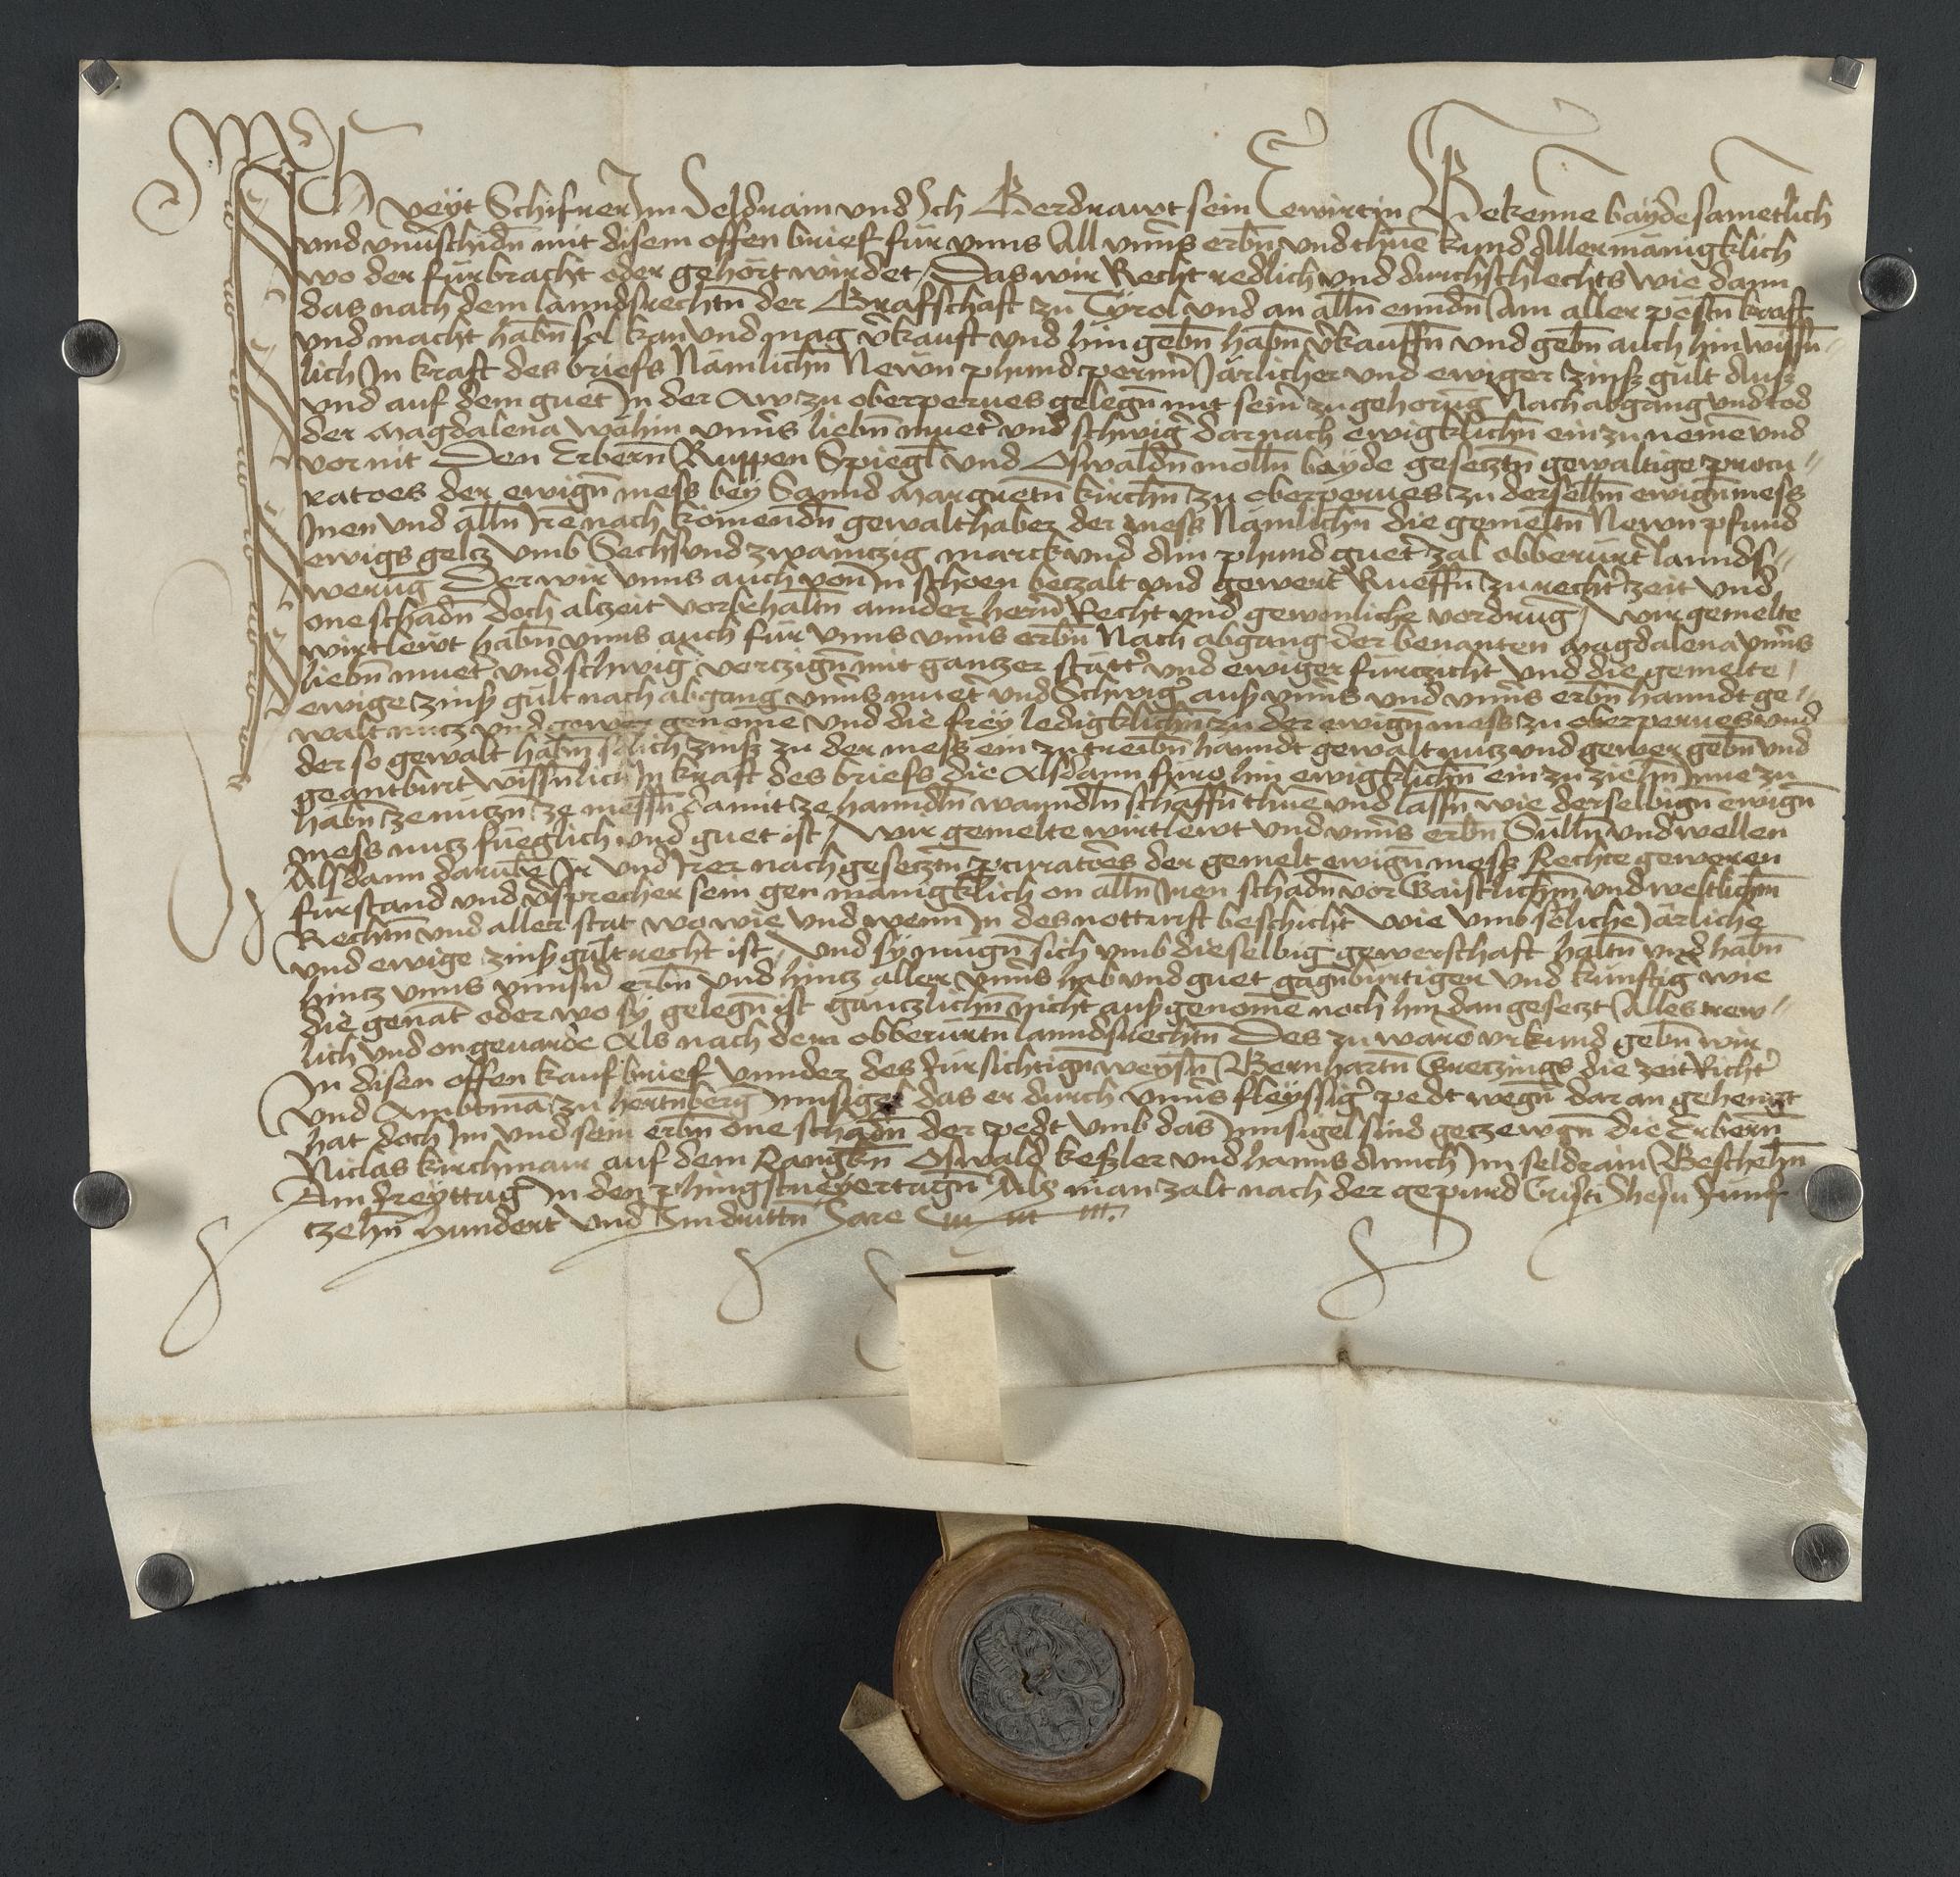 Ich veyt Schifner Im Seldrain und Ich Gerdrawt sein Eewirtin Bekenne bayde sametlich
und unuschidn mit disem offen brief für unns All unns erbn und thue kund Allermanigklich
wo der fürbracht oder gehört wirdet / Das wir Recht redlich und durchschlechts wie dann
das nach dem lanndsrechtn der Grafschaft zu Tyrol und an alln enndn Am aller pestn kraft
und macht habn sol kan und mag vkauft und hin gebn habn vkauffn und gebn auch hin wissn=
lich In kraft des briefs Nämlichn Newn phund perner Järlicher und ewiger zinß gült Auß
und auf dem guet In der Aw zu oberperues gelegn mit seiner zugehorung Nach abgang und tod
der Magdalena unns liebn mueter und schwiger darnach ewigklichn einzuneme und
vor nit Den Erbern Ruppen Spiegl und Oswaldn molln bayde gesetztn gewaltige procu=
ratoes der ewign mess bey Sannd Margretn kirchn zu oberperues zu derselbn ewign mess
Inen und alln Ire nach komendn gewalthaber der mess Nämlichn die gemeltn Newn pfund
ewigs geltz umb Sechsundzwaintzig marck und Ain phund gueter zal obberürter lannds=
werung Der wir unns auch von In schoen betzalt und gewert Rueffn zu rechter zeit und
one schadn doch altzeit vorbehaltn annder herrn Recht und gewonliche vordrung / Wir gemelte
wirtlewt habn unns auch für unns unns erbn Nach abgang der benanten Magdalena unns
liebn mueter und schwiger vertzign mit gantzer stätter und ewiger furtzicht und die gemelte
ewige zinß gült nach abgang unns mueter und Schwiger auß unns und unns erbn hanndt ge=
walt nutz und gewer genome und die frey ledigklichn zu der ewign mess zu oberperues und
der so gewalt habn solich zinß zu der mess ein zu treibn hanndt gewalt nutz und gewer gebn und
geantburt wissnlich In kraft des briefs die Alsdann füro hin ewigklichn ein zu ziehn Inne zu
habn ze nutzn ze niessn damit ze hanndln wanndln schaffn thuen und lassn wie derselbign ewign
mess nutz füeglich und guet ist / Wir gemelte wirtlewt und unns erbn Sulln und wellen
Alsdann darube Ir und Irer nach gesetztn pcuratoes der gemelt ewign mess Rechte geweren
fürstand und vsprecher sein gen manigklich on alln Iren schadn vor Gaistlichm und weltlichm
Rechtn und aller stat wo wie und wenn In des notturft beschicht wie umb soliche Järliche
und ewige zinß gült recht ist / Und sy mugn sich umb dieselbig gewerschaft haltn und habn
hintz unns unnsn erbn und hintz aller unns hab und guet gagnbürtigen und künftig wie
die genat oder wo sy gelegn ist gantzlichn nicht außgenome noch hin dan gesetzt Alles trew=
lich und ongeuarde Als nach dem obberürtn lanndsrechtn Des zu waro urkund gebn wir
In disen offen kaufbrief unnder des fürsichtign weysn Bernhartn Gretzings die zeit Richter
und Ambtma zu hertnberg Innsigel das er durch unns fleyssiger pedt wegn dar an gehenngt
hat doch Im und sein erbn one schadn der pedt umb das Innsigel sind getzewgn die Erbern
Niclas kirchmair auf dem Rangkn Oswald keßler und hanns Im seldrain Beschehn
Am freyttag In den phingstueyertagn Als man zalt nach der gepurd Cristi Jhesu Funf
tzehn hundert und Im drittn Jare